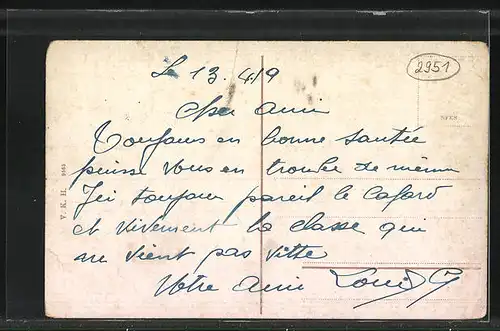 Le 13.4.19
2951
Cher Ami
Toujours en bonne santée
puisse vous en trouber de même
Ici toujours pareil le Cafard
et vivement la classe qui
ne vient pas vitte
Votre Ami Louis
V. K. H.